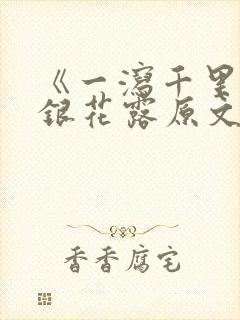 《一泻千里
银花露原文
香香腐宅